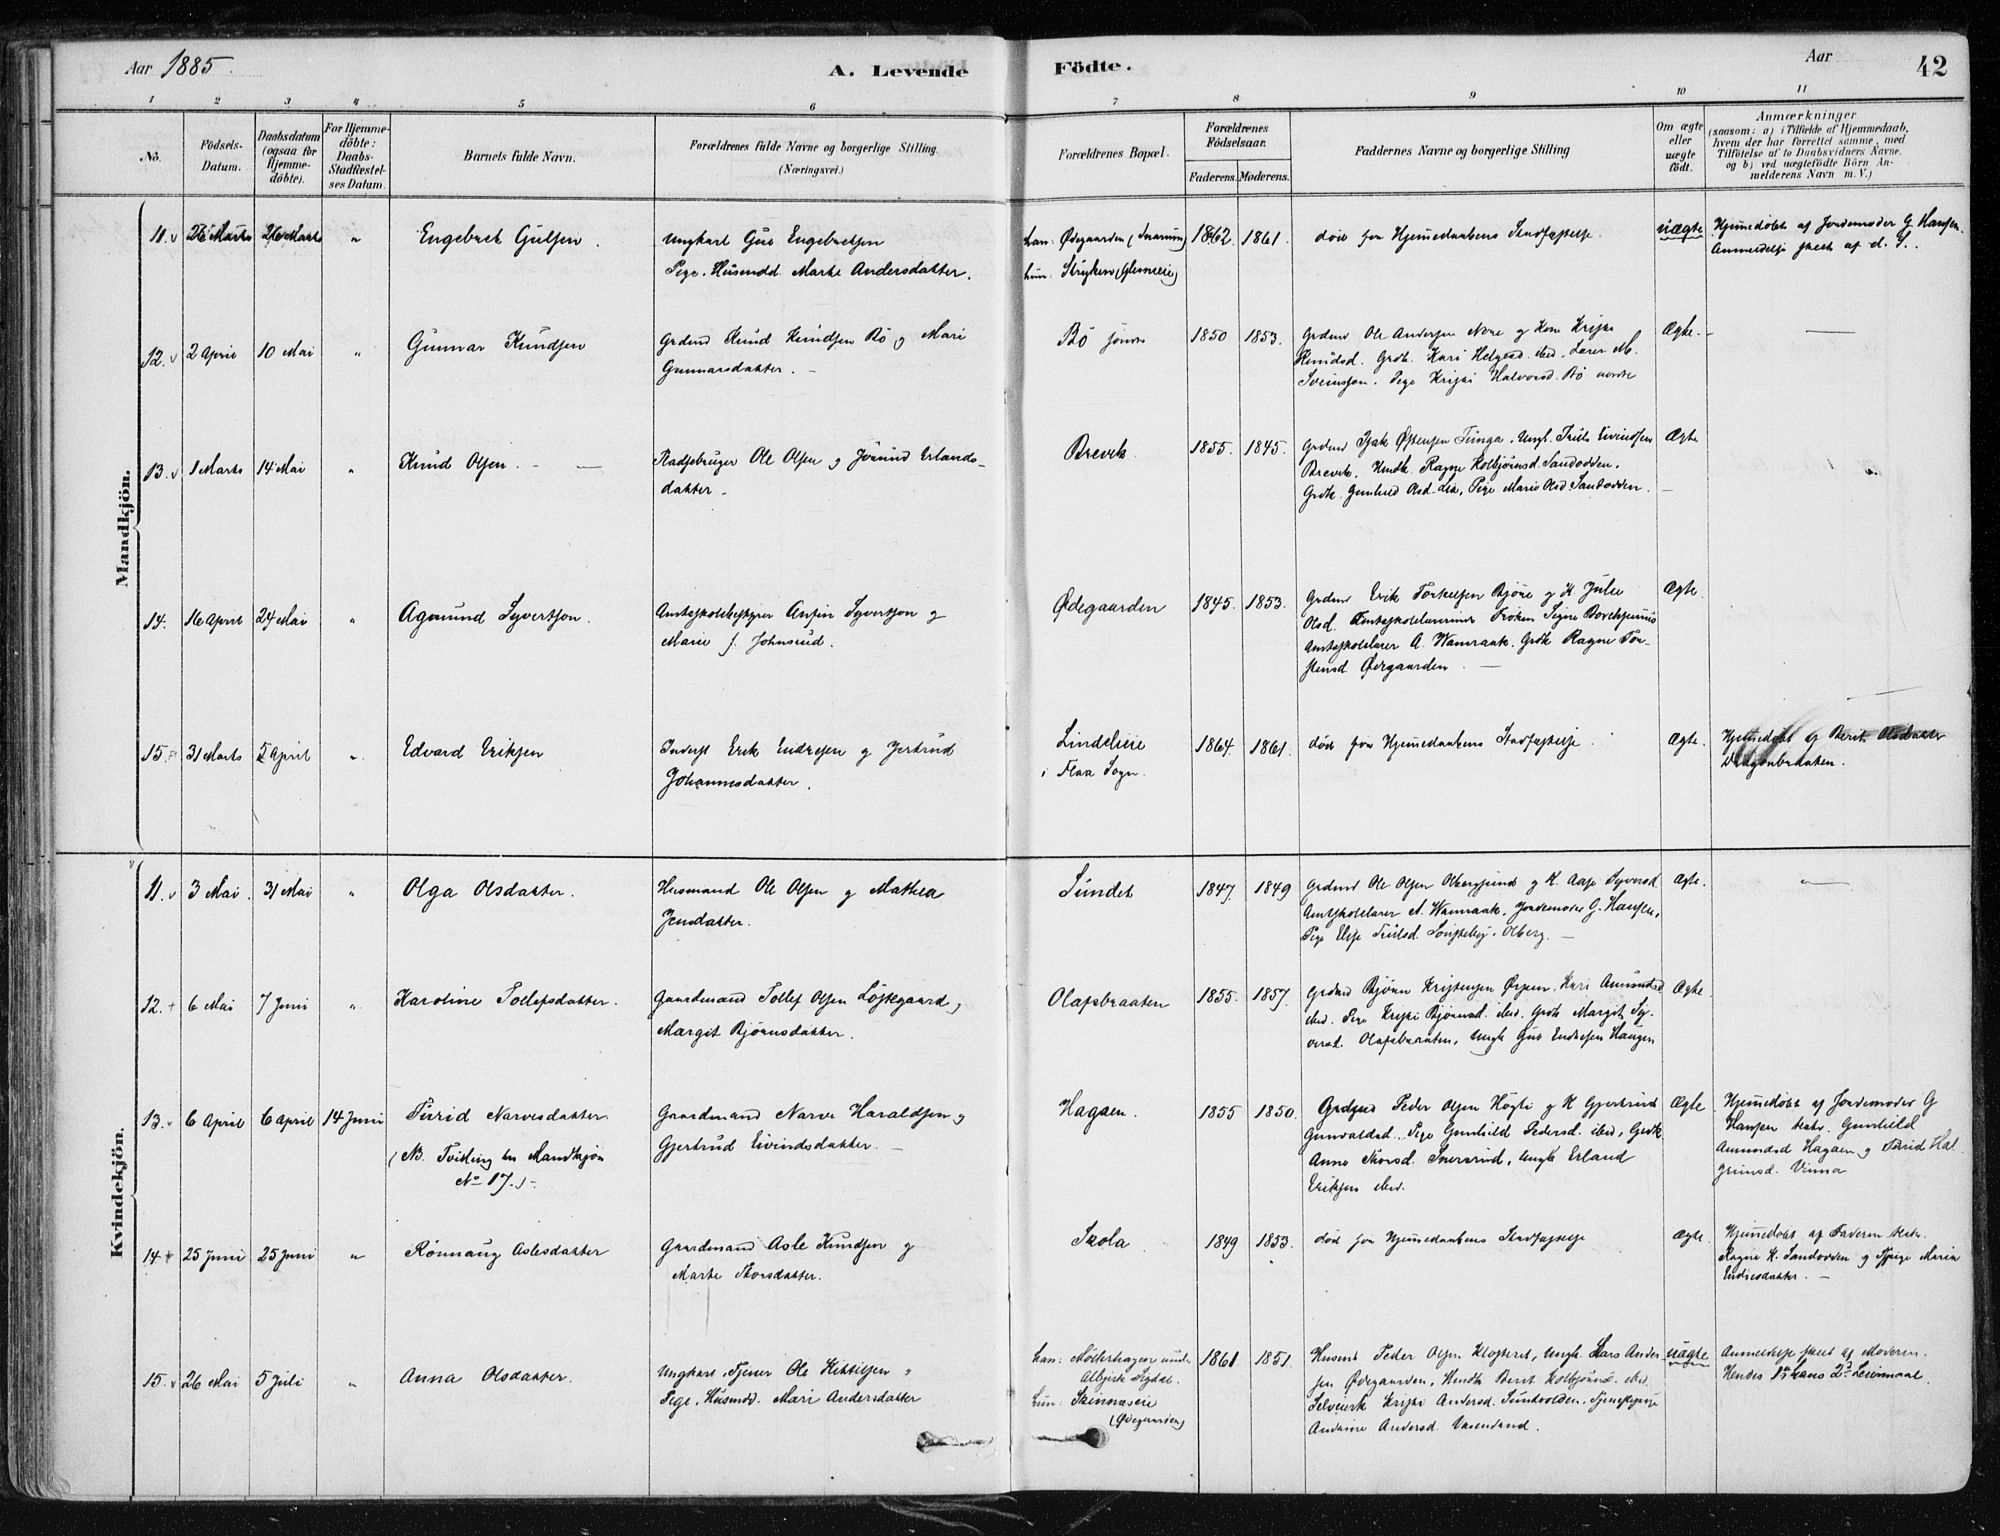 Aar 1885.
A. Levende Födte.
Aar
42
1 2 3 4 5 6 7 8 9 10 11
No.
Födsels-Datum.
Daabsdatum (ogsaa for Hjemme-döbte).
For Hjemme-döbte: Daabs-Stadfæstel-ses Datum.
Barnets fulde Navn.
Forældrenes fulde Navne og borgerlige Stilling.
(Næringsvei.)
Forældrenes Bopæl.
Forældrenes Födselsaar.
Faderens. Moderens.
Faddernes Navne og borgerlige Stilling
Om ægte eller uægte födt.
Anmærkninger
(saasom: a) i Tilfælde af Hjemmedaab,
hvem der har forrettet samme, med
Tilföielse af to Daabsvidners Navne.
og b) ved uægtefödte Börn An-
melderens Navn m. V.)
Mandkjön.
11. 26 Marts 26 Marts " Engebret Gulsen.
Ungkarl Gul Engebretsen
Pige. Husmdd. Marte Andersdatter.
han: Ødegaarden (Snarum)
hun: Stryken (Glesneie)
1862. 1861.
död før Hjemmedaabens Stadfæstelse.
uægte
Hjemmedöbt af Jordemoder G. Hansen.
Anmeldelse skeet af d. S.
12. 2 April 10 Mai " Gunnar Knudsen
Grdmd Knud Knudsen Bö og Mari
Gunnarsdatter. –
Bö
1850 1853.
Grdmd Ole Andersen Nere og Kone
Knudsd. Grdk. Kari Helgesd. ibd. Lærer M.
Sveinsson. Pige Halvorsd. Bö
Ægte. –
13. 1 Marts 14 Mai " Knud Olsen. – –
Pladsbruger Ole Olsen og Jörund Erlands-
datter.
Brevik.
1855. 1845.
Grdmd Isak Østensen Tunga. Ungk. Truls Eivindsen
Brevik. Hmdk. Ragne Kolbjörnsd. Sandodden.
Grdk. Gunhild Olsd. Lia, Pige Marie Olsd Sandodden.
Ægte
14. 16 April 24 Mai " Agmund Syvertson.
Amtsskolebestyrer Anfin Syvertson og
Marie f. Johnsrud.
Ødegaarden
1845. 1853.
Grdmd Erik Torkelsen Björe og K. Julie
Olsd. Amtsskolelærerinde Fröken Signe
Amtsskolelærer A. Wamraak. Grdk Ragne Tor-
stensd. Ødegaarden. –
Ægte.
15. 31 Marts 2 April " Edvard Eriksen
Inderst Erik Endresen og Jertrud
Johannesdatter.
Lindelien
i Flaa Sogn.
1864. 1861.
död før Hjemmedaabens Stadfæstelse.
Ægte.
Hjemmedöbt af Berit Olsdatter
Kvindekjön.
11. 3 Mai. 31 Mai " Olga Olsdatter.
Husmand Ole Olsen og Mathea
Jensdatter.
Sundet
1847. 1849
Grdmd Ole Olsen og K. Aase Syversd.
Amtsskolelærer A. Wamraak. Jordemoder G. Hansen,
Pige Else Trulsd. Olberg. –
Ægte.
12. 6 Mai 7 Juni " Karoline Tollefsdatter.
Gaardmand Tollef Olsen Löstegaard og
Margit Björnsdatter.
Olafsbraaten
1855. 1857.
Grdmd Björn Kristensen. Kari Amundsd
ibd. Pige Björnsd. ibd. Grdk Margit Sy-
versd. Olafsbraaten, Ungk Gul Endresen Haugen
Ægte
13. 6 April 6 April 14 Juni Turid Narvesdatter
(NB. Tvilling til Mandkjön
No 17.) –
Gaardmand Narve Haraldsen og
Gjertrud Eivindsdatter. –
Hagaen.
1855 1850.
Grdmd Peder Olsen Högli og K Gjertrud
Gunvaldsd. Pige Gunhild Pedersd. ibd, Grdk
Anne Thorsd. Snersrud, Ungk Erland
Eriksen ibd.
Ægte
Hjemmedöbt af Jordemoder G
Hansen testr. Gunhild
Amundsd Hagaen og Turid Hal-
grimsd. Vinna
14 25 Juni 25 Juni " Rönnaug Aslesdatter
Gaardmand Asle Knudsen og
Marte Thorsdatter.
Skola
1849 1853.
död før Hjemmedaabens Stadfæstelse
Ægte.
Hjemmedöbt af Faderen testr.
Ragne K. Sandodden og Pige Maria
Endresdatter. –
15. 26 Mai 5 Juli " Anna Olsdatter.
Ungkarl, Tjener Ole Kittilsen
Pige, Husmdd. Mari Andersdatter
han:
Sigdal.
hun: Skinnæseie
(Ødegaarden)
1861 1851.
Husmd Peder Olsen Klosteret, Ungk. Lars Ander-
sen Ødegaarden, Hmdk Berit Kolbjörnsd. ibd.
Selveierk Andersd. Sundvolden. Tjenestepige
Andrine Andersd. Vasendrud.
uægte
Anmeldelse skeet af Moderen.
Hendes 1ste hans 2det Leiermaal.